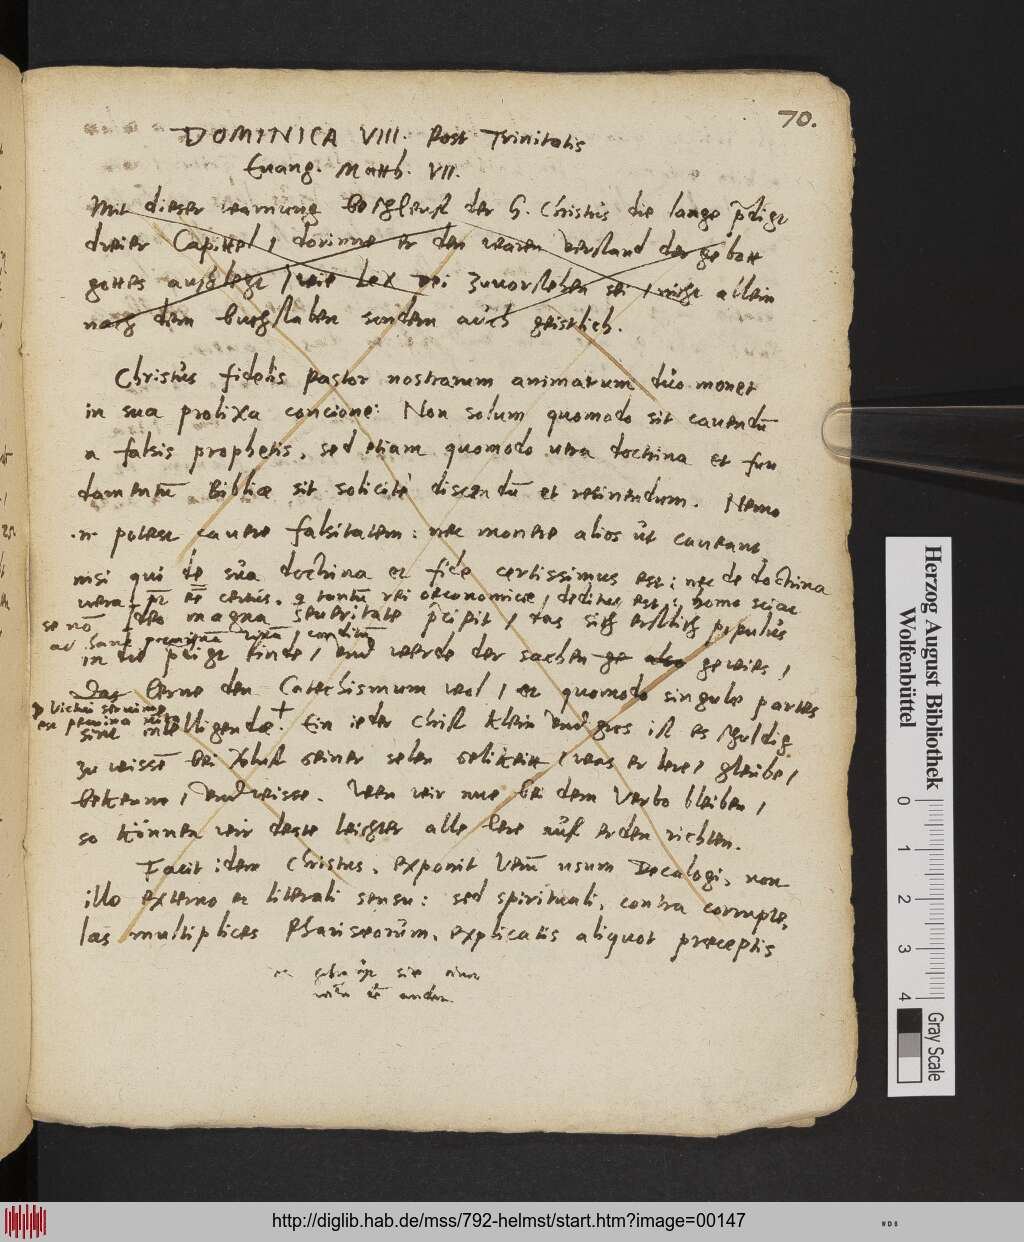 70.
DOMINICA VIII. Post Trinitatis
Euang. Matth. VII.
Mit dieser warnung beschleust der H. Christus die lange p̃digt
dreier Capittel, dorinne er den waren verstand der gebott
gottes auslegt, wie lex dei zuuorstehen sei, nicht allein
nach dem buchstaben sondern auch geistlich.
Christus fidelis pastor nostrarum animarum duo monet
in sua prolixa concione: Non solum quomodo sit cauendū
a falsis prophetis, sed etiam quomodo vera doctrina et fun
damentū Bibliæ sit solicitè discendū et retinendum. Nemo
.n. potest cauere falsitatem: nec monere alios ut caueant,
nisi qui de sua doctrina et fide certissimus est: nec de doctrina
vera certus, tantū rei oeconomicæ, deditus est: homo
se nō Ideo magna seueritate p̃cipit, das sich erstlich populus
in die p̃digt finde, vnd werde der sachen ge also gewies,
Das lerne den Catechismum wol, et quomodo singulæ partes
sint intelligendæ. + Ein ieder Christ klein vnd gros ist es schuldig
zu wissē bei verlust seiner selen selikeitt, was er lere, gleube,
bekenne, vnd wisse. Wen wir nue bei dem Verbo bleiben,
so können wir deste leichter alle lere auf erden richten.
Facit idem Christus, exponit verū usum Decalogi, non
illo externo et literali sensu: sed spirituali, contra corrupte,
las multiplices Phariseorum, explicatis aliquot preceptis
Herzog August Bibliothek
Wolfenbüttel
0 1 2 3 4
Gray Scale
http://diglib.hab.de/mss/792-helmst/start.htm?image=00147